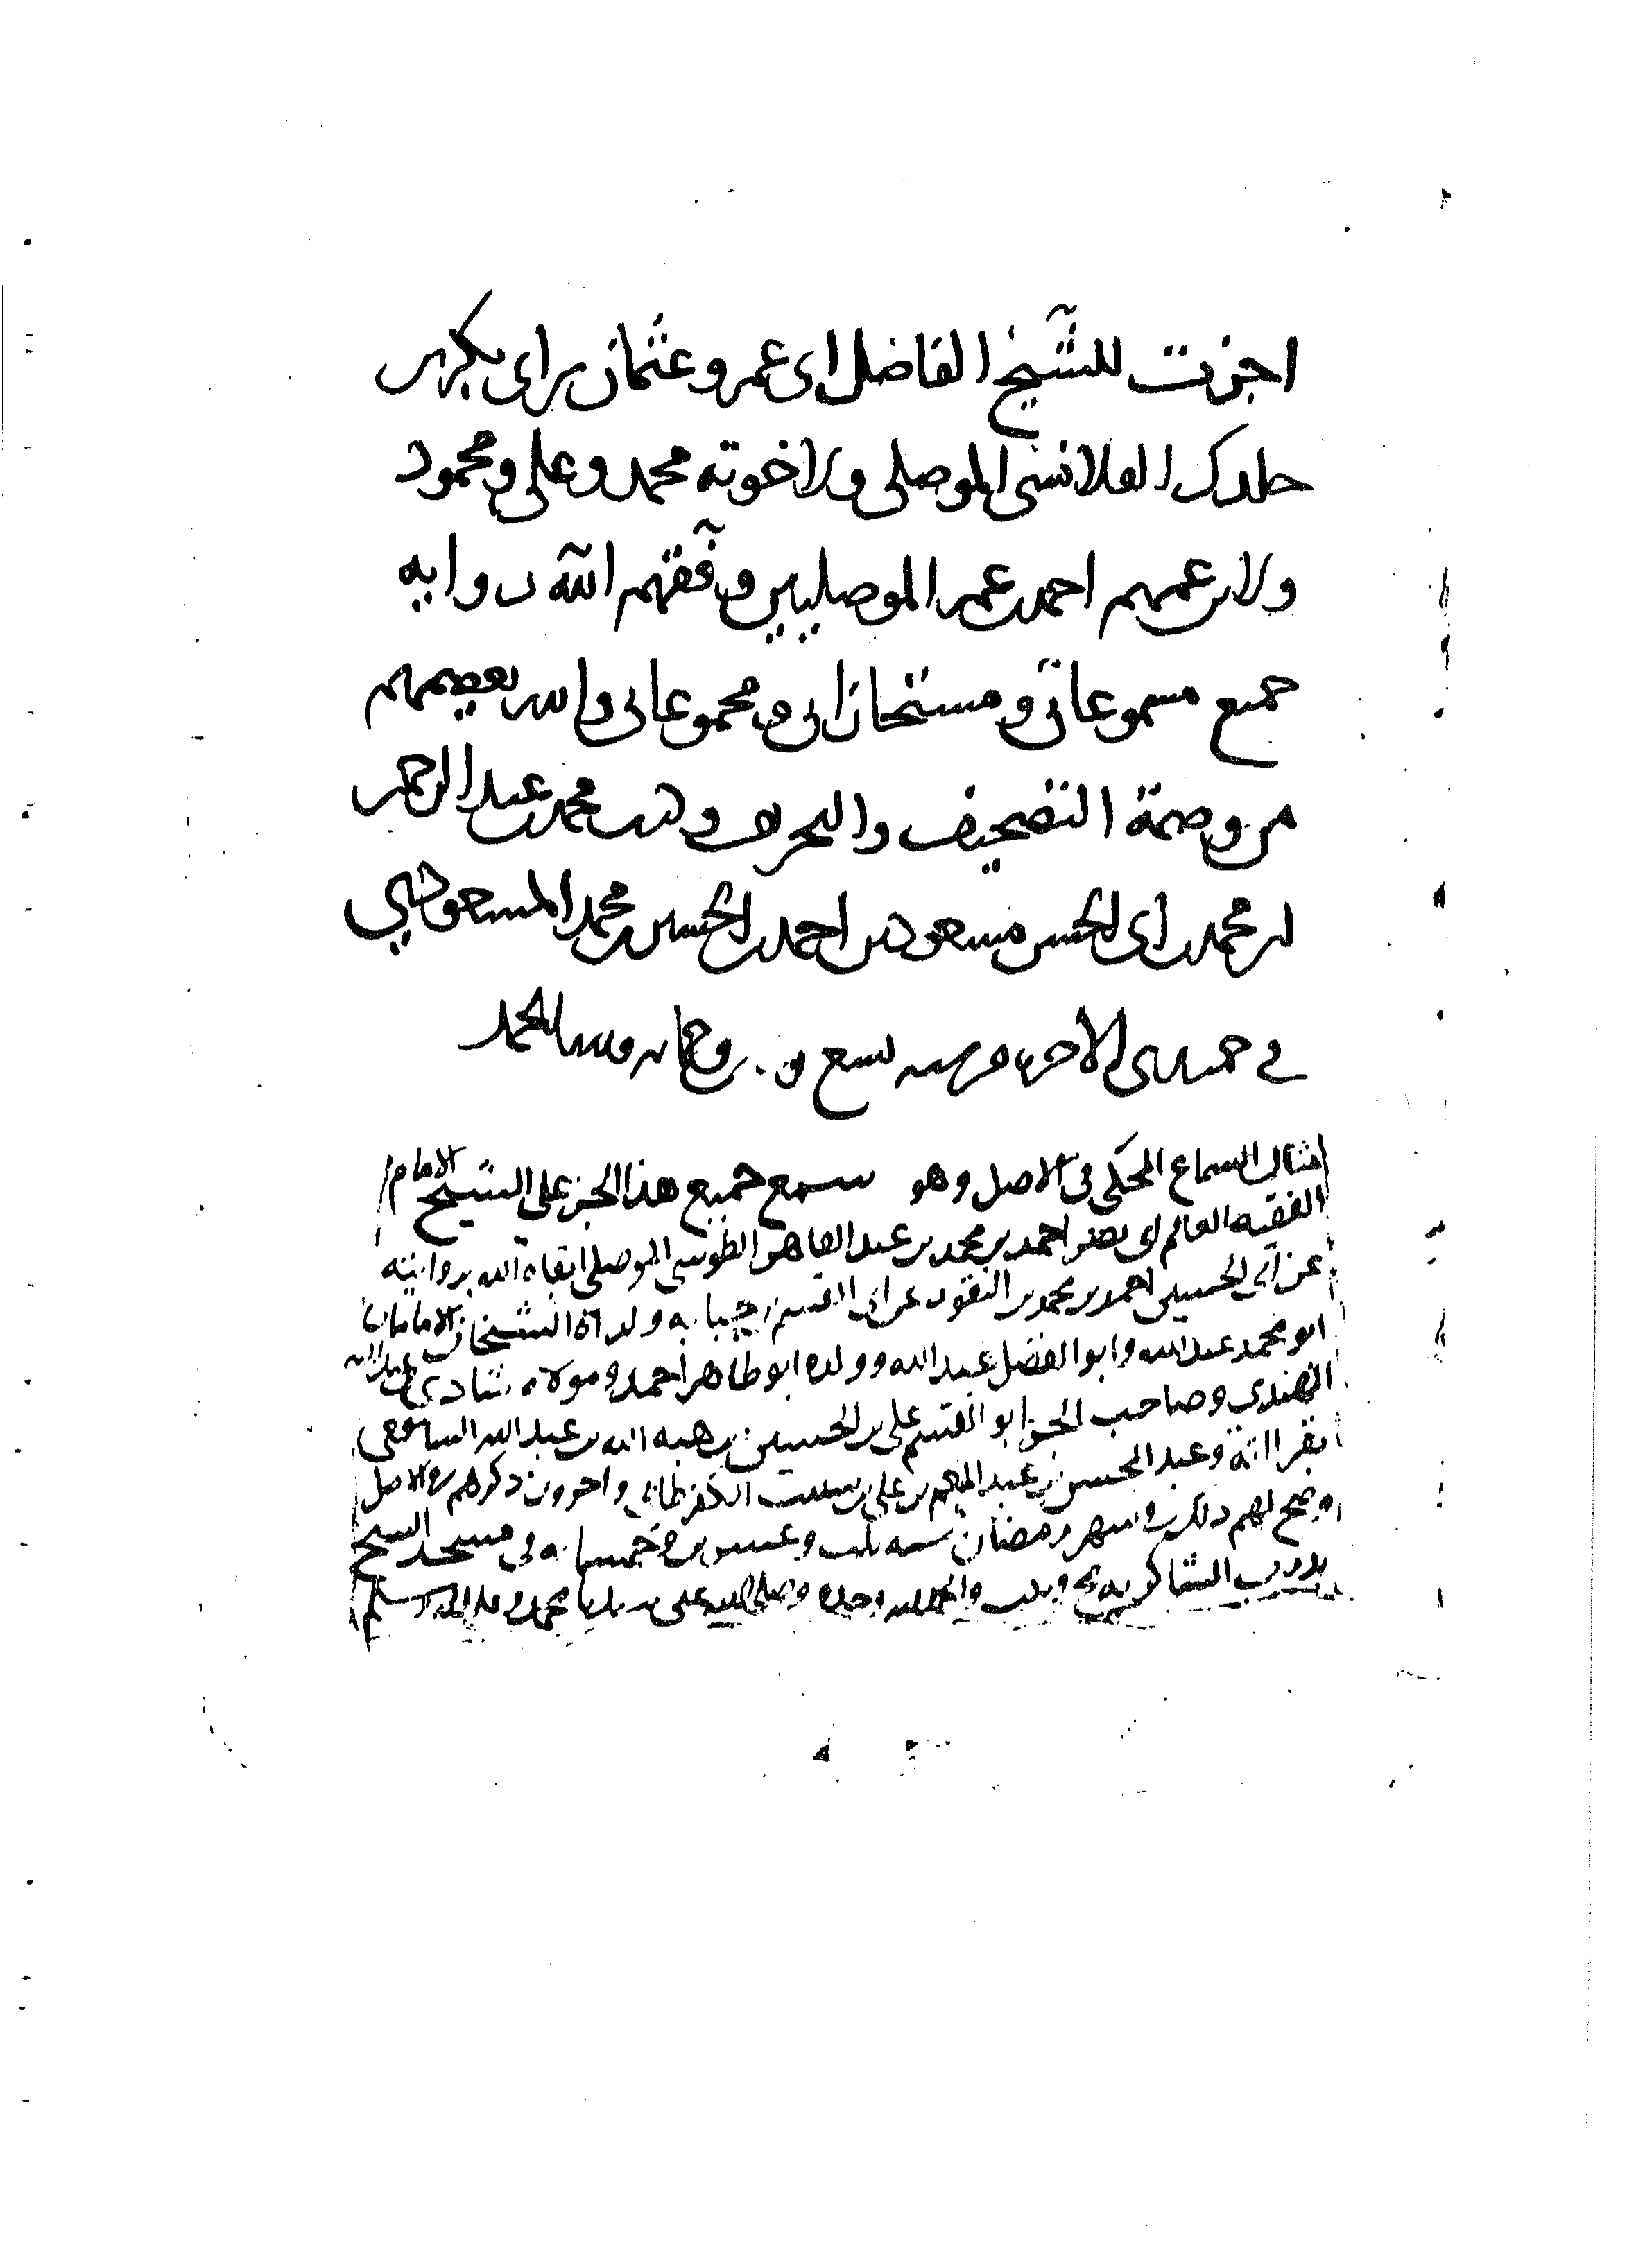 اجزت للشيخ الفاضل ابى عمرو عثمان بن ابى بكر بن
جلدك القلانسى الموصلى ولاخوته محمد وعلى ومحمود
ولابن عمهم احمد بن عمر الموصليين وفقهم الله رواية
جميع مسموعاتى ومستجازاتى ومجموعاتى والله يعصمهم
من وصمة التصحيف والتحريف وكتب محمد بن عبد الرحمن
بن محمد بن ابى الحسن مسعود بن احمد بن الحسين بن محمد المسعودي
فى جمادى الاخرة من سنة تسع و
مثال السماع المحكى فى الاصل وهو سمع جميع هذا الجزء على الشيخ الامام
الفقيه العالم ابى نصر احمد بن محمد بن عبد القاهر الطوسى الموصلى ابقاه الله بروايته
عن ابى الحسين احمد بن محمد بن النقور عن ابى القسم بن حبابه ولداه الشيخان الامامان
ابو محمد عبد الله وابو الفضل عبد الله وولده ابو طاهر احمد ومولاه شادى بن عبد الله
الهندى وصاحب الجزء ابو القسم على بن الحسين بن هبة الله بن عبد الله الشافعى
بقراءته وعبد المحسن بن عبد المنعم بن على بن الكفرطابى واخرون ذكرهم فى الاصل
وصح لهم ذلك فى شهر رمضان سنة ثلاث وعشرين وخمسمائة فى مسجد الشيخ
بدرب الشاكرية والحمد لله وحده وصلى الله على سيدنا محمد وعلى اله وسلم